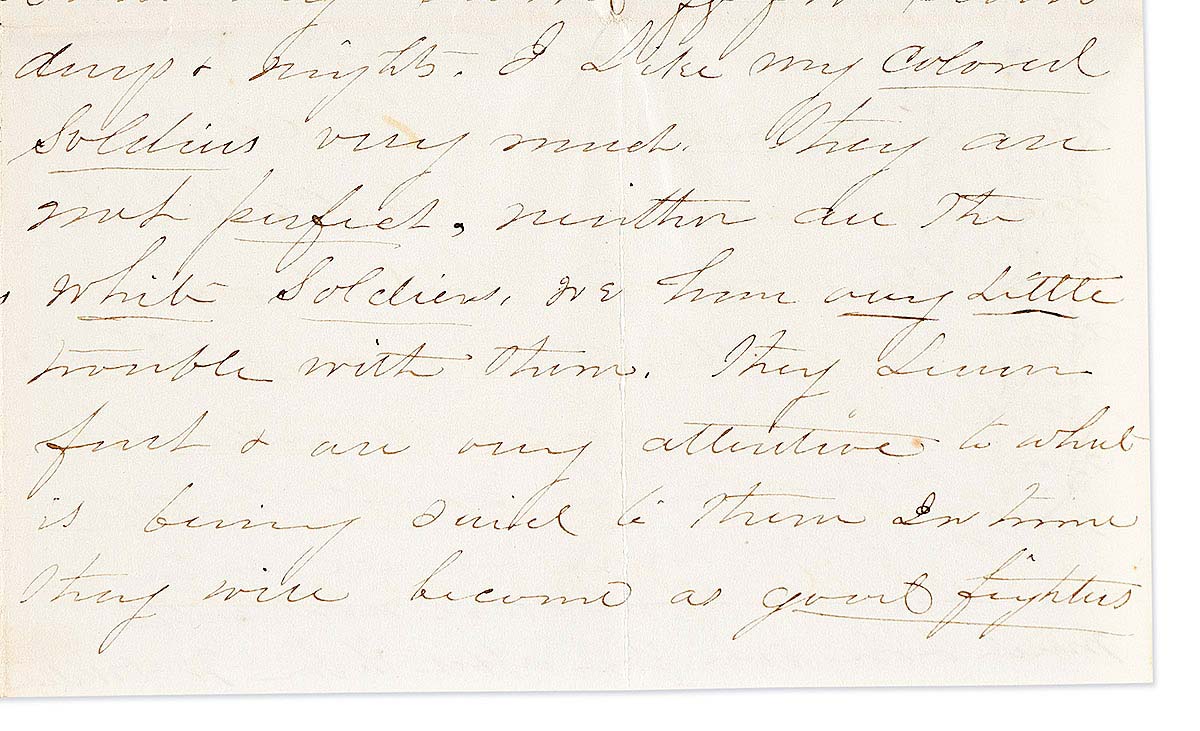 days & nights. I Like my Colored
Soldiers very much. They are
not perfect, neither are the
white Soldiers, we have very Little
trouble with them. They Learn
fast & are very attentive to what
is being said to them In time
they will become as good fighters